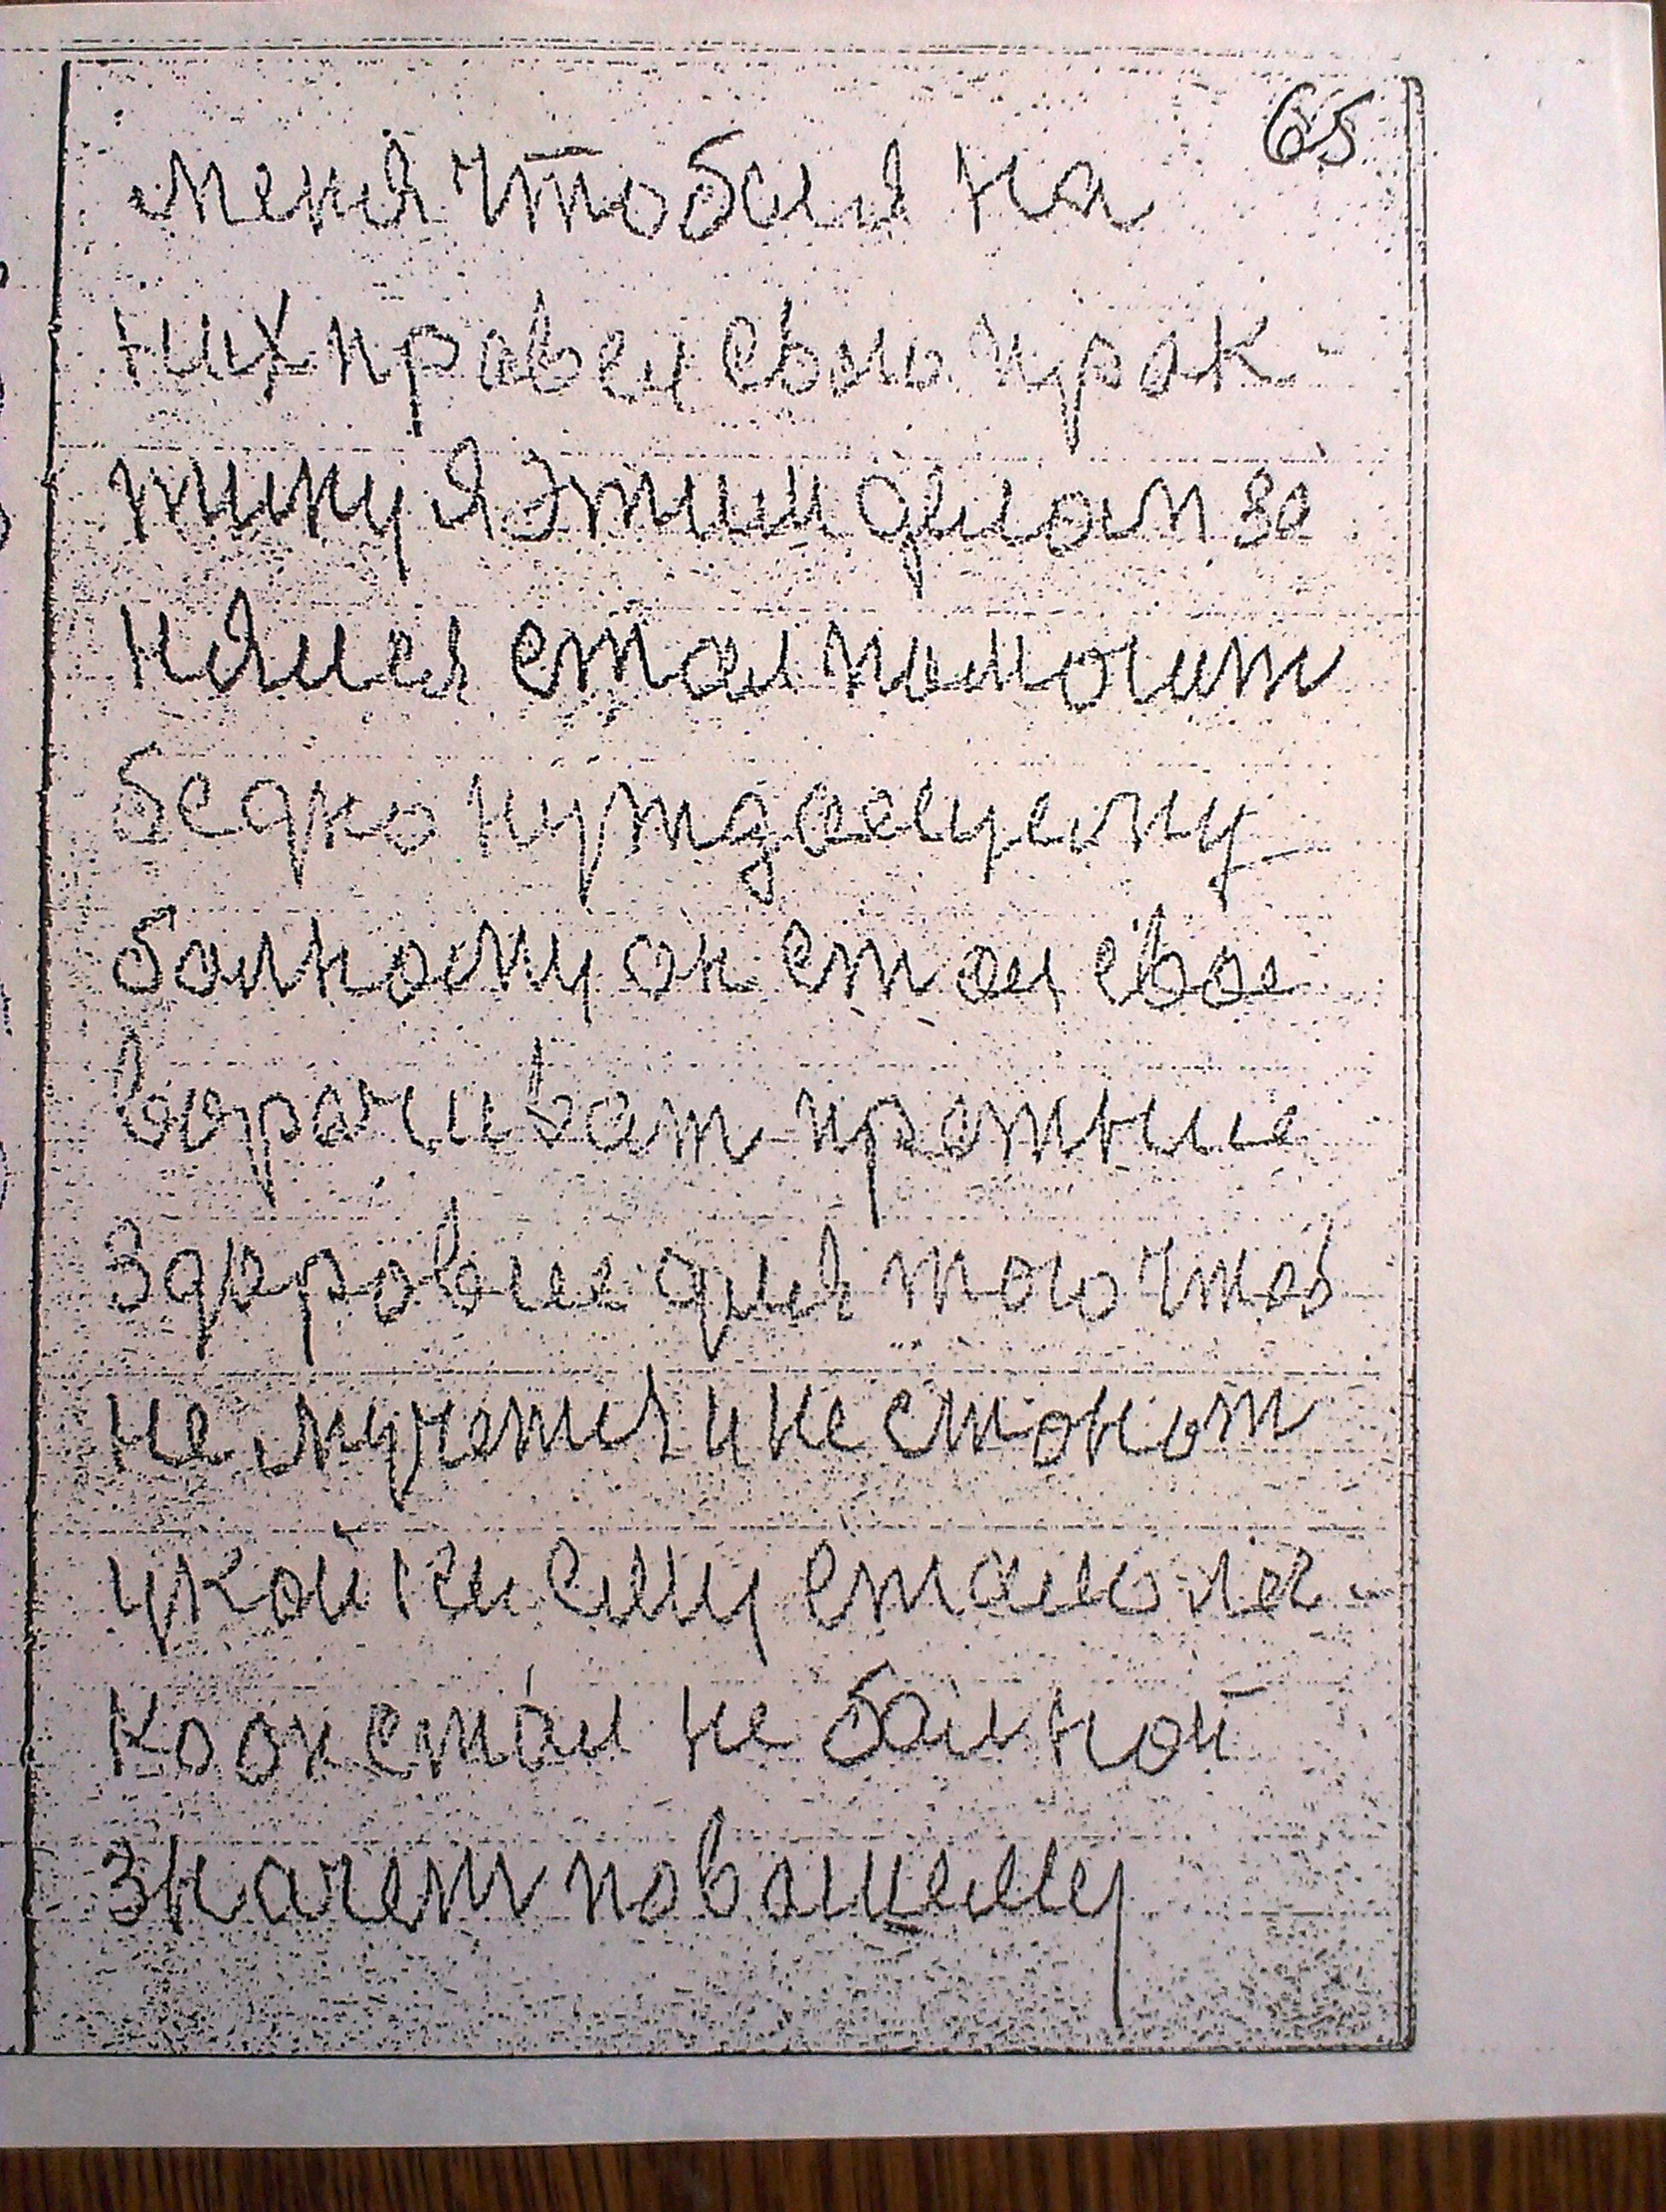 65
меня чтобы я на
них провел свою прак-
тику я этим делам за
нялся стал помогат
бедно нуждаемому
болному он стал свое
ворачиват протние
здоровие для того чтоб
не мучется и не стонат
укой ки ему стало лег-
ко он стал не болной
значет по вашему